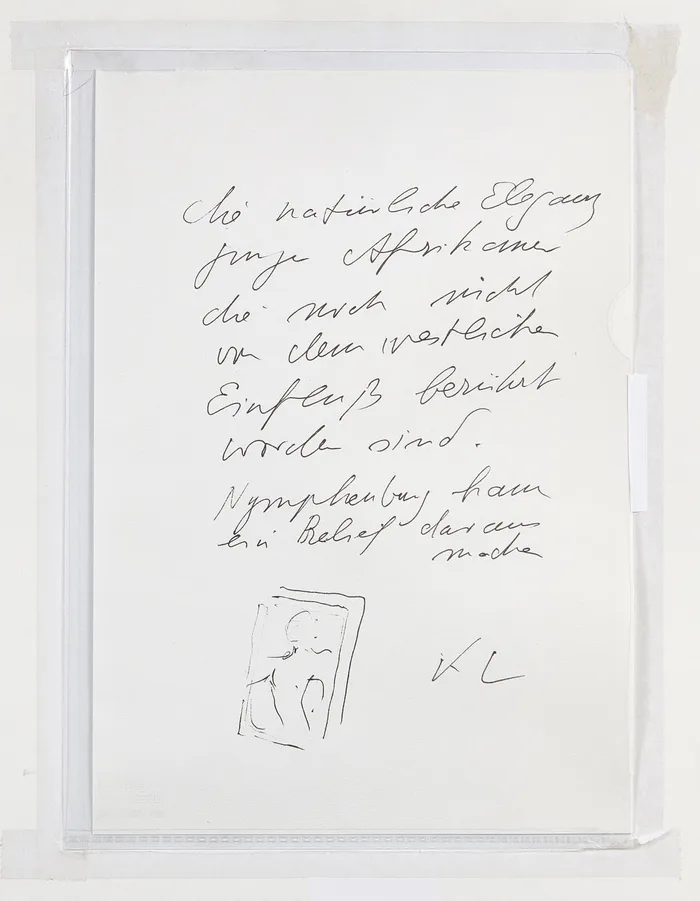 die natürliche Eleganz
junge Afrikaner
die noch nicht
von dem westlichen
Einfluß berührt
worden sind.
Nymphenburg kann
ein Relief daraus
machen
KL